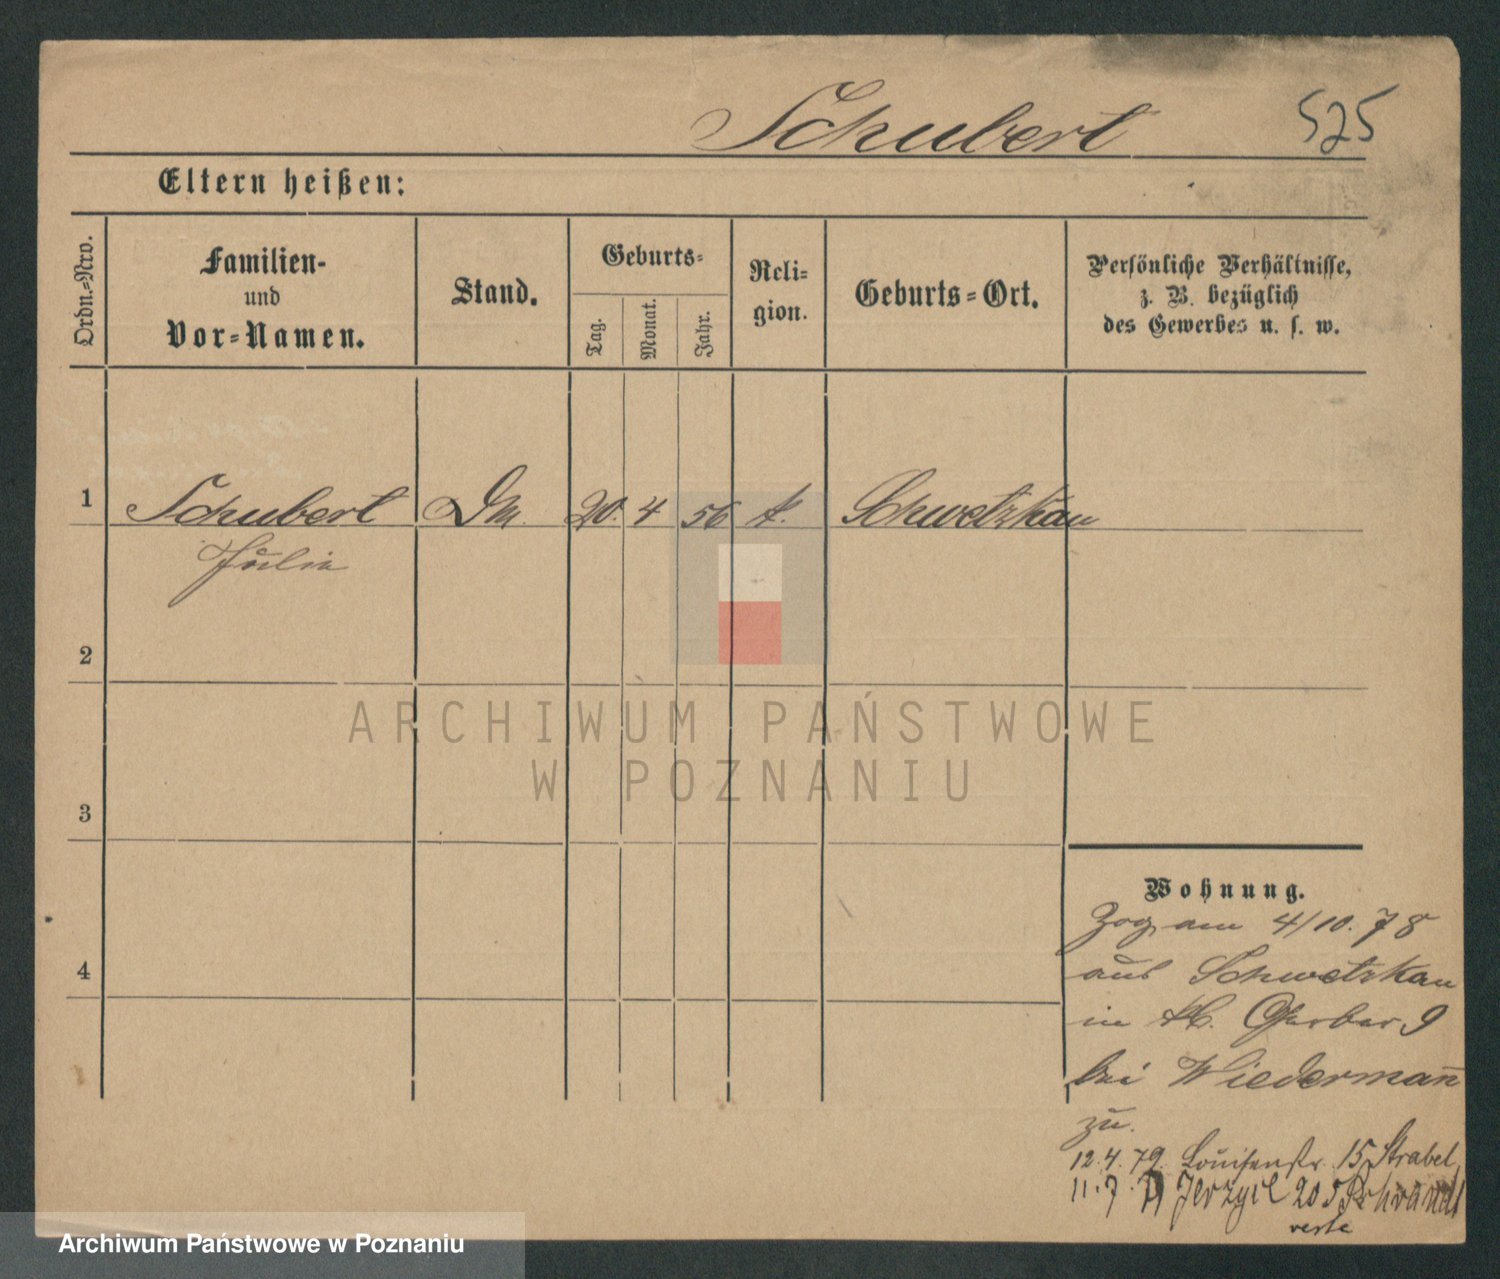 Schubert 525
Eltern heißen:
Ordn.-Nro.
Familien-
und
Vor-Namen.
Stand.
Geburts-
Tag.
Monat.
Jahr.
Reli-
gion.
Geburts-Ort.
Persönliche Verhältnisse,
z. B. bezüglich
des Gewerbes u. s. w.
1 Schubert Dm. 20. 4 56 k. Schwetzkau
Julie
2
3
4
Wohnung.
Zog am 4/10. 78
aus Schwetzkau
in Gerber 9
bei Wiedermann
zu.
12.4.79. Louisenstr. 15 Strabel
11.7 Jerzyce 20
ARCHIWUM PAŃSTWOWE
W POZNANIU
Archiwum Państwowe w Poznaniu